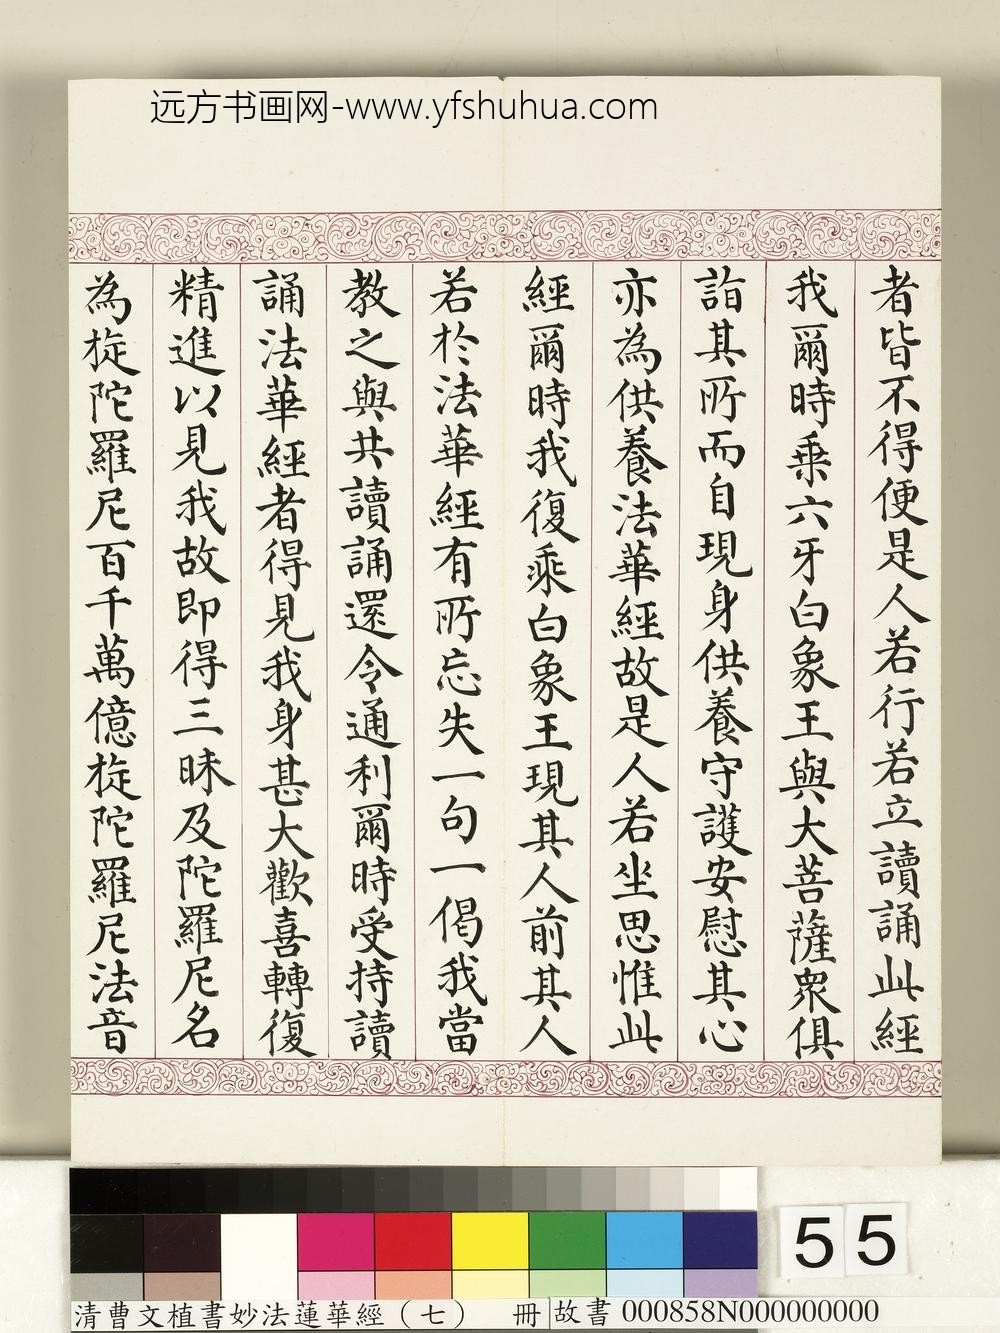 远方书画网-www.yfshuhua.com
者皆不得便是人若行若立讀誦此經
我爾時乗六牙白象王與大菩薩衆俱
詣其所而自現身供養守護安慰其心
亦為供養法華經故是人若坐思惟此
經爾時我復乘白象王現其人前其人
若於法華經有所忘失一句一偈我當
教之與共讀誦還令通利爾時受持讀
誦法華經者得見我身甚大歡喜轉復
精進以見我故即得三昧及陀羅尼名
為旋陀羅尼百千萬億旋陀羅尼法音
55
清曹文植書妙法蓮華經（七） 冊 故書 000858N000000000